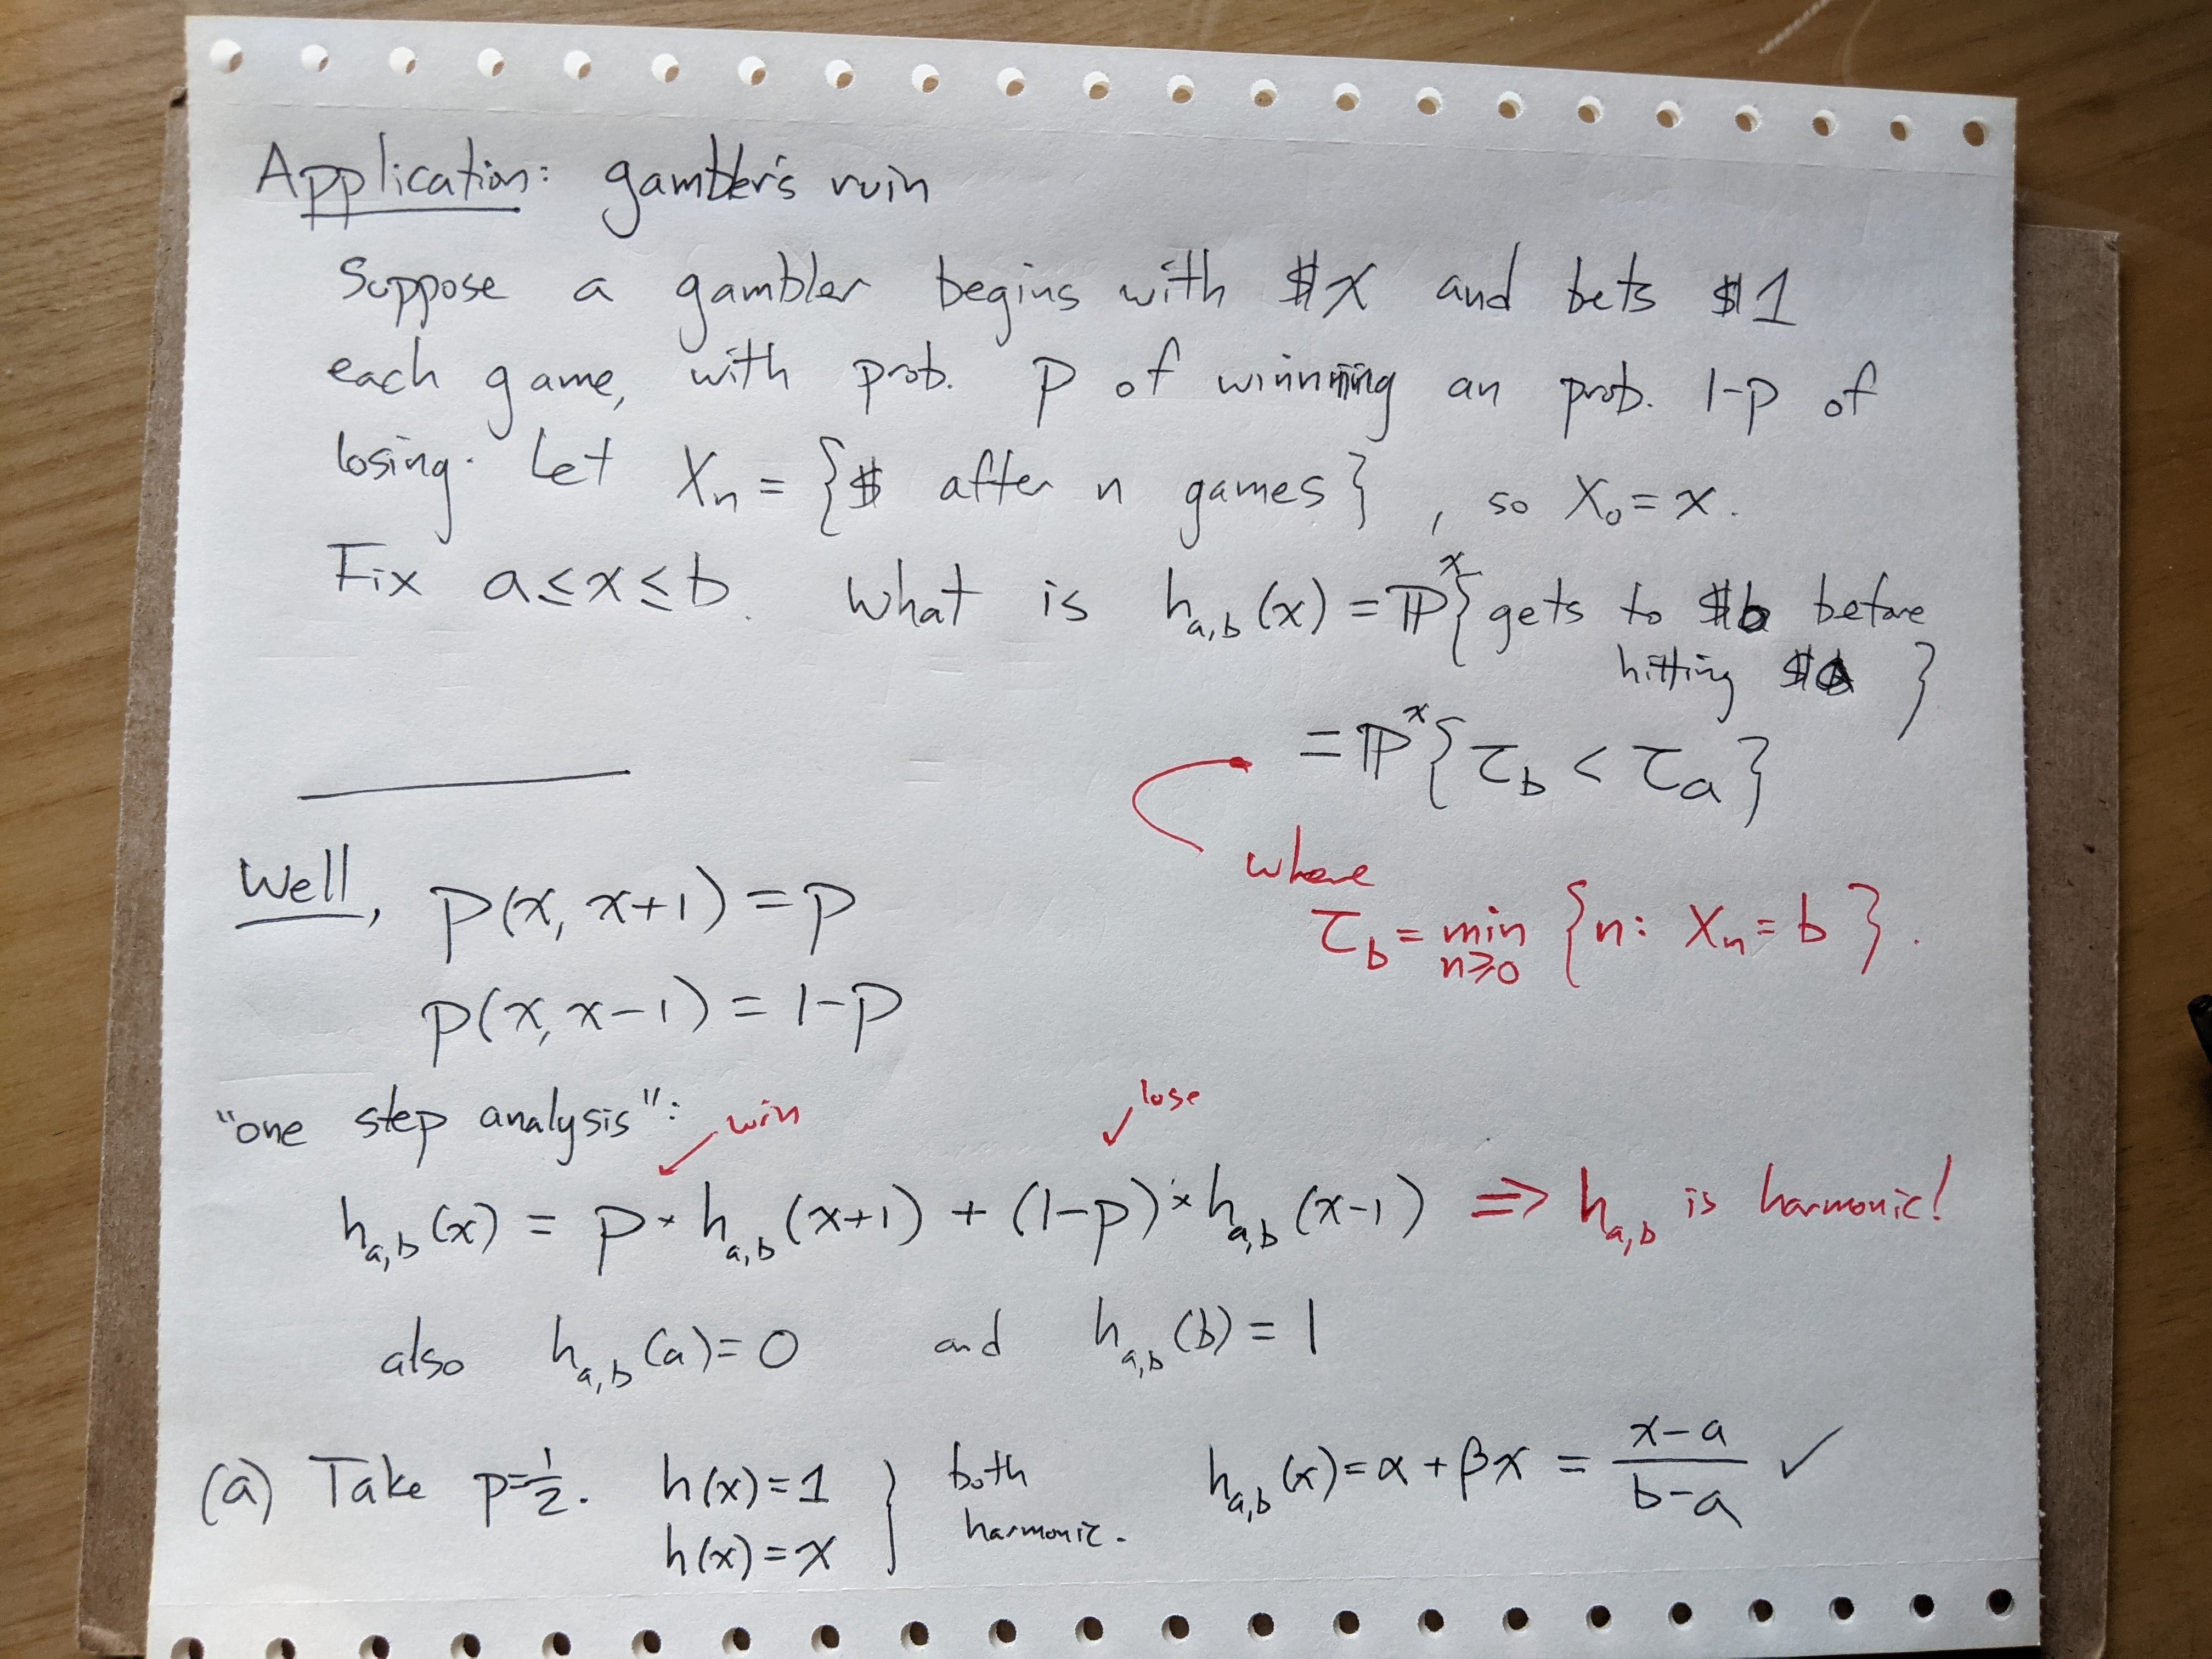 Application: gambler's ruin
Suppose a gambler begins with $x and bets $1
each game, with prob. p of winning an prob. 1-p of
losing. Let Xₙ = {$ after n games}, so X₀ = x.
Fix a ≤ x ≤ b. What is h_{a,b}(x) = ℙˣ{gets to $b before
hitting $a}
= ℙˣ{τ_b < τ_a}
where
τ_b = min_{n≥0} {n: Xₙ = b}.
Well, p(x, x+1) = p
p(x, x-1) = 1-p
"one step analysis":
win
lose
h_{a,b}(x) = p × h_{a,b}(x+1) + (1-p) × h_{a,b}(x-1) ⇒ h_{a,b} is harmonic!
also h_{a,b}(a) = 0 and h_{a,b}(b) = 1
(a) Take p=1/2. h(x) = 1 } both h_{a,b}(x) = α + βx = (x-a)/(b-a) ✓
h(x) = x } harmonic.